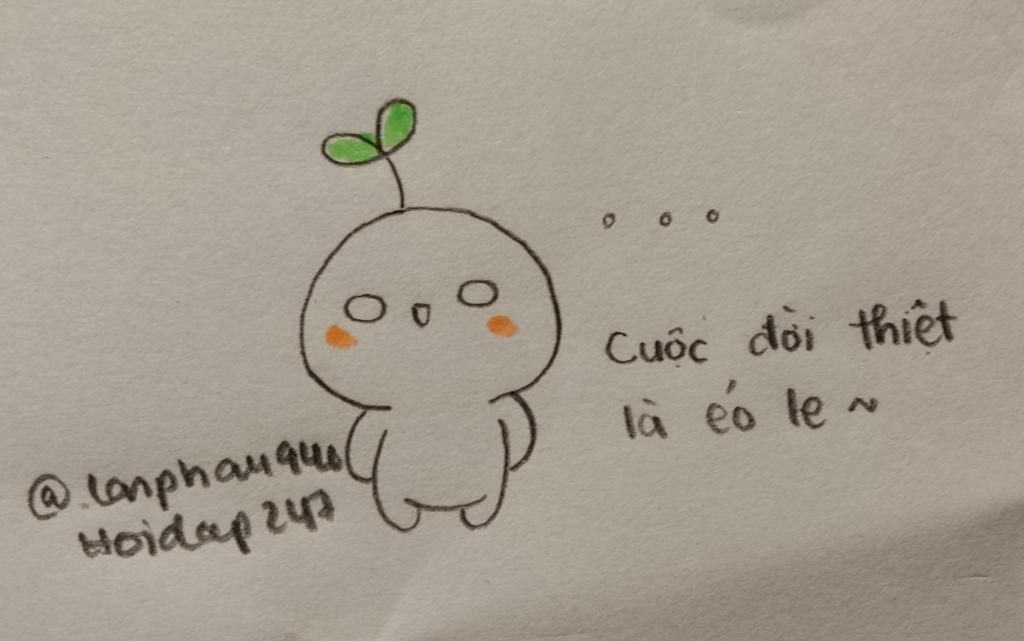 Cuộc đời thiệt
là éo le ~
Hoidap247